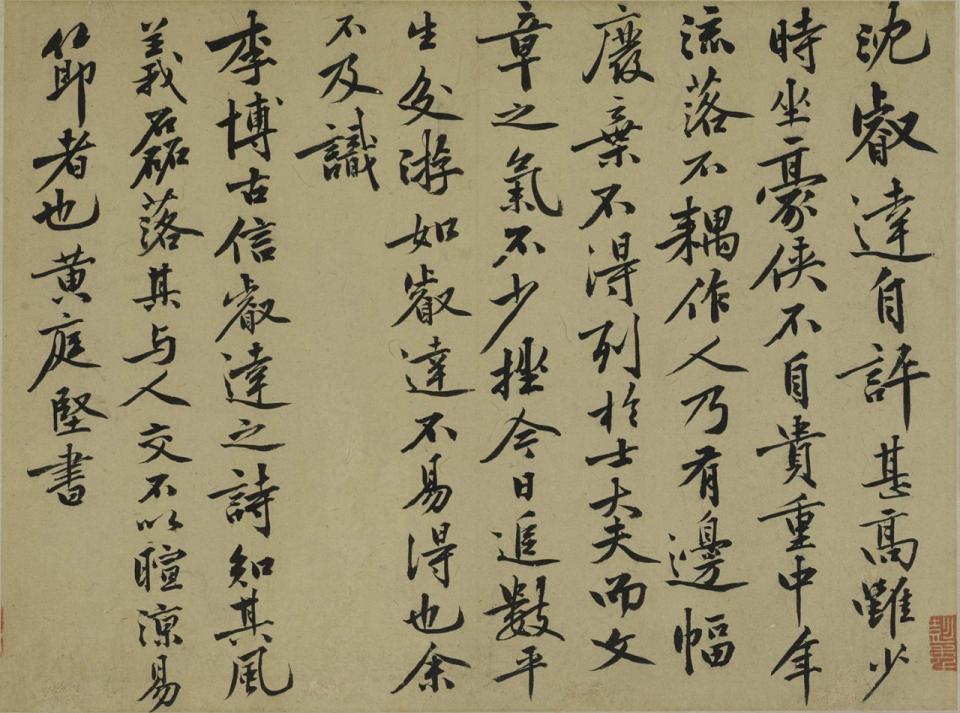 沈睿達自許甚高雖少
時坐豪俠不自貴重中年
流落不耦作人乃有邊幅
廢棄不得列於士大夫而文
章之氣不少挫今日追數平
生交游如睿達不易得也余
不及識
李博古信睿達之詩知其風
義磊落其与人交不以暄涼易
節者也黄庭堅書